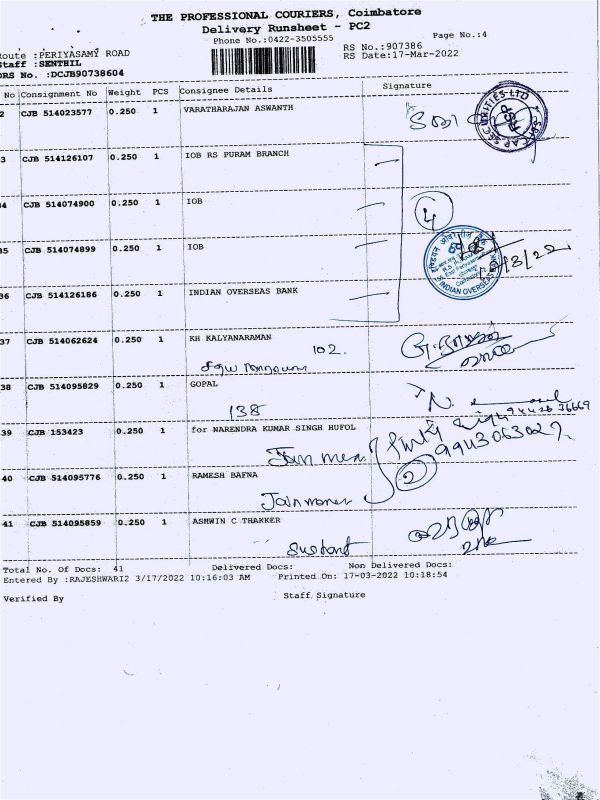 THE PROFESSIONAL COURIERS, Coimbatore
Delivery Runsheet - PC2
Phone No.:0422-3505555
Page No.:4
RS No.:907386
RS Date:17-Mar-2022
Route :PERIYASAMY ROAD
Staff :SENTHIL
DRS No. :DCJB90738604
No Consignment No Weight PCS Consignee Details Signature
2 CJB 514023577 0.250 1 VARATHARAJAN ASWANTH
3 CJB 514126107 0.250 1 IOB RS PURAM BRANCH
34 CJB 514074900 0.250 1 IOB
4
35 CJB 514074899 0.250 1 IOB
INDIAN OVERSEAS
36 CJB 514126186 0.250 1 INDIAN OVERSEAS BANK
37 CJB 514062624 0.250 1 KH KALYANARAMAN
102.
38 CJB 514095829 0.250 1 GOPAL
138
39 CJB 153423 0.250 1 for NARENDRA KUMAR SINGH HUFOL
9943063027
2
40 CJB 514095776 0.250 1 RAMESH BAFNA
41 CJB 514095859 0.250 1 ASHWIN C THAKKER
Total No. Of Docs: 41 Delivered Docs: Non Delivered Docs:
Entered By :RAJESHWARI2 3/17/2022 10:16:03 AM Printed On: 17-03-2022 10:18:54
Verified By Staff Signature